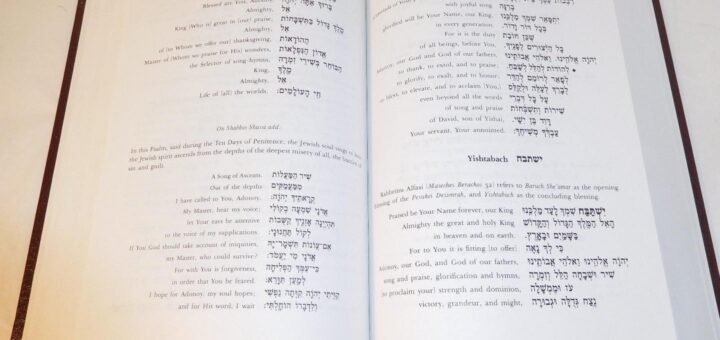 Blessed are You, Adonoy, בָּרוּךְ אַתָּה יְהֹוָה
Almighty, אֵל
King [Who is] great in [our] praise, מֶלֶךְ גָּדוֹל בַּתִּשְׁבָּחוֹת
Almighty, אֵל
of [to Whom we offer our] thanksgiving, הַהוֹדָאוֹת
Master of [Whom we praise for His] wonders, אֲדוֹן הַנִּפְלָאוֹת
the Selector of song-hymns, הַבּוֹחֵר בְּשִׁירֵי זִמְרָה
King, מֶלֶךְ
Almighty, אֵל
Life of [all] the worlds. חֵי הָעוֹלָמִים:
On Shabbos Shuvä add:
In this Psalm, said during the Ten Days of Penitence, the Jewish soul
the Jewish spirit ascends from the depths of the deepest misery of all, the
sin and guilt.
A Song of Ascents. שִׁיר הַמַּעֲלוֹת
Out of the depths מִמַּעֲמַקִּים
I have called to You, Adonoy. קְרָאתִיךָ יְהֹוָה:
My Master, hear my voice; אֲדֹנָי שִׁמְעָה בְקוֹלִי
let Your ears be attentive תִּהְיֶינָה אָזְנֶיךָ קַשֻּׁבוֹת
to the voice of my supplications. לְקוֹל תַּחֲנוּנָי:
If You God should take account of iniquities, אִם־עֲוֹנוֹת תִּשְׁמָר־יָהּ
my Master, who could survive? אֲדֹנָי מִי יַעֲמֹד:
For with You is forgiveness, כִּי־עִמְּךָ הַסְּלִיחָה
in order that You be feared. לְמַעַן תִּוָּרֵא:
I hope for Adonoy, my soul hopes; קִוִּיתִי יְהֹוָה קִוְּתָה נַפְשִׁי
and for His word, I wait וְלִדְבָרוֹ הוֹחָלְתִּי:
with joyful song בְּרִנָּה
glorified will be Your Name, our King יִתְפָּאַר שִׁמְךָ מַלְכֵּנוּ
in every generation. בְּכָל דּוֹר וָדוֹר.
For it is the duty שֶׁכֵּן חוֹבַת
of all beings, before You, כָּל הַיְצוּרִים לְפָנֶיךָ
Adonoy, our God and God of our fathers, יְהֹוָה אֱלֹהֵינוּ וֵאלֹהֵי אֲבוֹתֵינוּ
to thank, to extol, and to praise; לְהוֹדוֹת לְהַלֵּל לְשַׁבֵּחַ
to glorify, to exalt, and to honor; לְפָאֵר לְרוֹמֵם לְהַדֵּר
to bless, to elevate, and to acclaim [You] לְבָרֵךְ לְעַלֵּה וּלְקַלֵּס
even beyond all the words עַל כָּל דִּבְרֵי
of song and praise שִׁירוֹת וְתִשְׁבְּחוֹת
of David, son of Yishai, דָּוִד בֶּן יִשַׁי
Your servant, Your annointed. עַבְדְּךָ מְשִׁיחֶךָ:
Yishtabach ישתבח
Rabbeinu Alfasi (Maseches Berachos 32) refers to Baruch She'amar as the opening
blessing of the Pesukei Dezimrah, and Yishtabach as the concluding blessing.
Praised be Your Name forever, our King יִשְׁתַּבַּח שִׁמְךָ לָעַד מַלְכֵּנוּ
Almighty the great and holy King הָאֵל הַמֶּלֶךְ הַגָּדוֹל וְהַקָּדוֹשׁ
in heaven and on earth. בַּשָּׁמַיִם וּבָאָרֶץ.
For to You it is fitting [to offer] כִּי לְךָ נָאֶה
Adonoy, our God, and God of our fathers, יְהֹוָה אֱלֹהֵינוּ וֵאלֹהֵי אֲבוֹתֵינוּ
song and praise, glorification and hymns, שִׁיר וּשְׁבָחָה הַלֵּל וְזִמְרָה
[to proclaim your] strength and dominion, עֹז וּמֶמְשָׁלָה
victory, grandeur, and might, נֶצַח גְּדֻלָּה וּגְבוּרָה